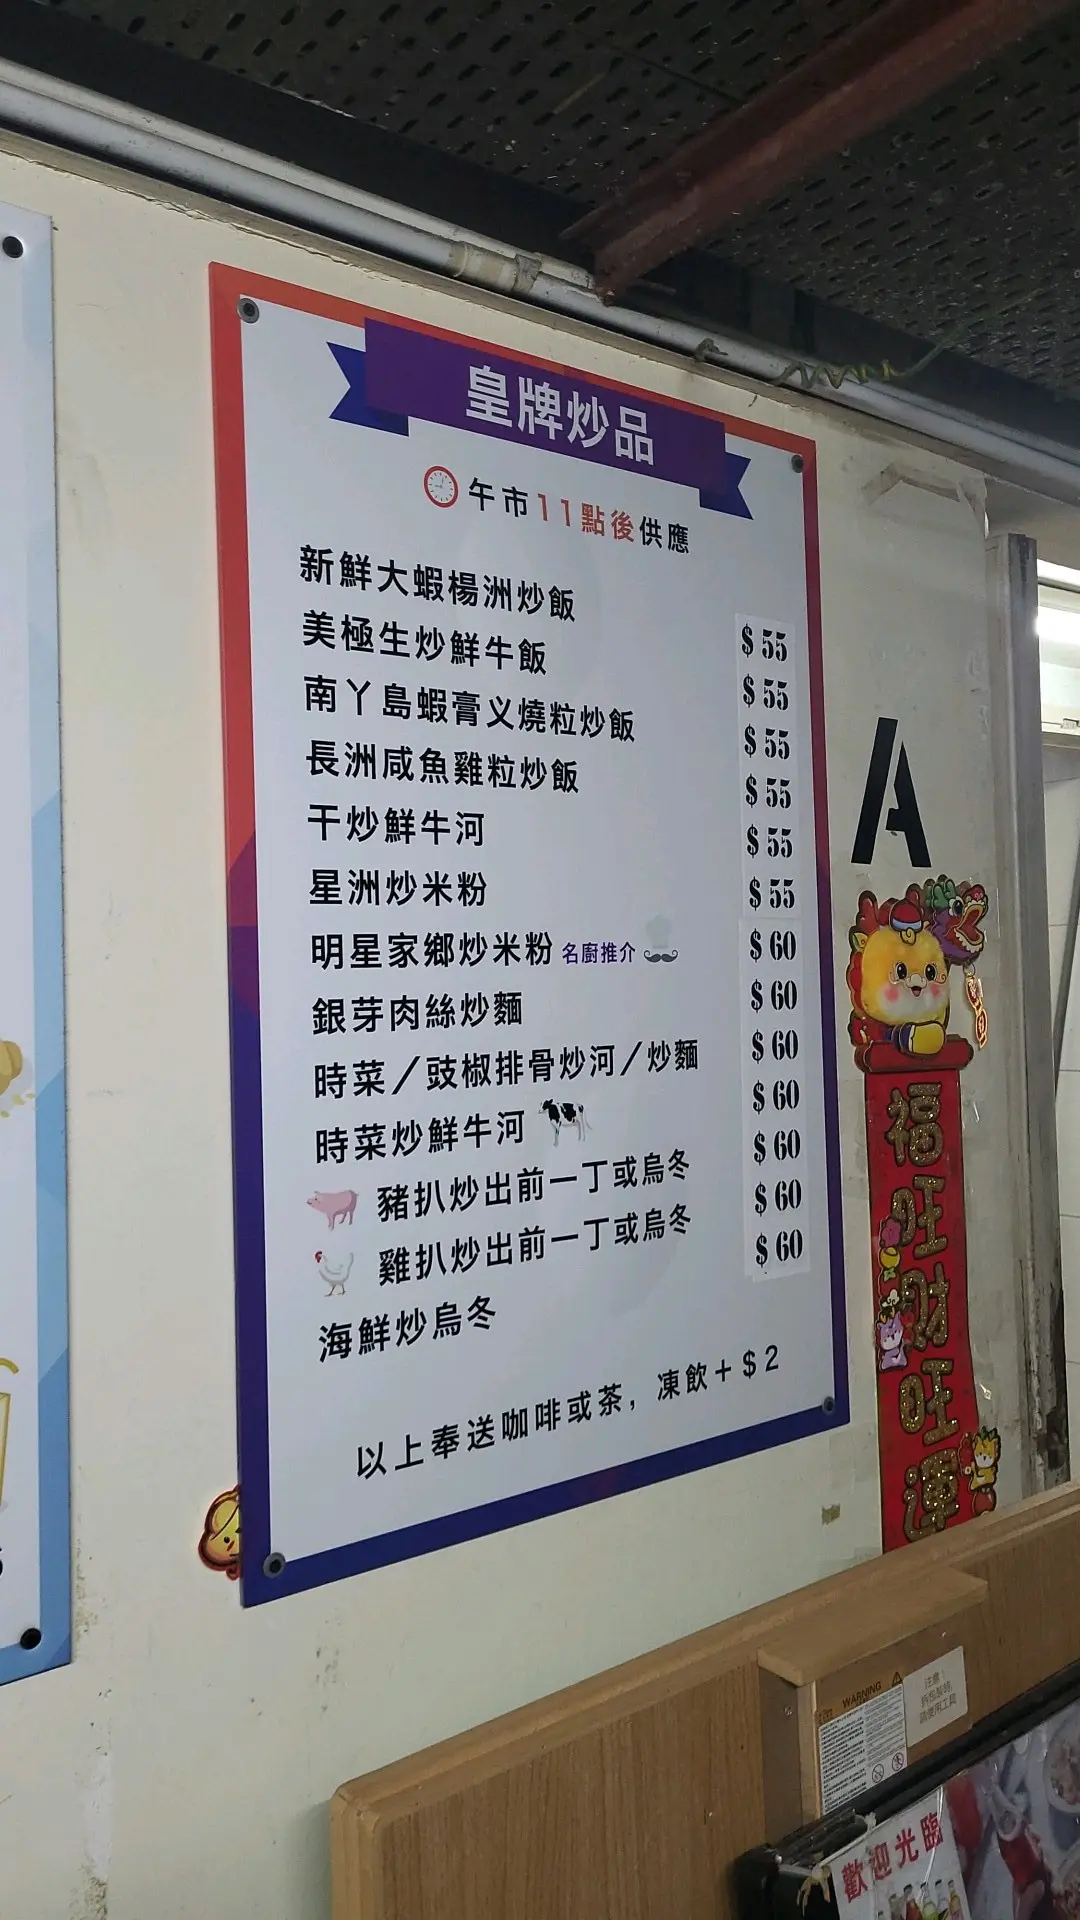 皇牌炒品
午市11點後供應
新鮮大蝦楊洲炒飯 $55
美極生炒鮮牛飯 $55
南丫島蝦膏义燒粒炒飯 $55
長洲咸魚雞粒炒飯 $55
干炒鮮牛河 $55
星洲炒米粉 $55
明星家鄉炒米粉 名廚推介 $60
銀芽肉絲炒麵 $60
時菜／豉椒排骨炒河／炒麵 $60
時菜炒鮮牛河 $60
豬扒炒出前一丁或烏冬 $60
雞扒炒出前一丁或烏冬 $60
海鮮炒烏冬 $60
以上奉送咖啡或茶，凍飲＋$2
A
福旺財旺運
WARNING
歡迎光臨